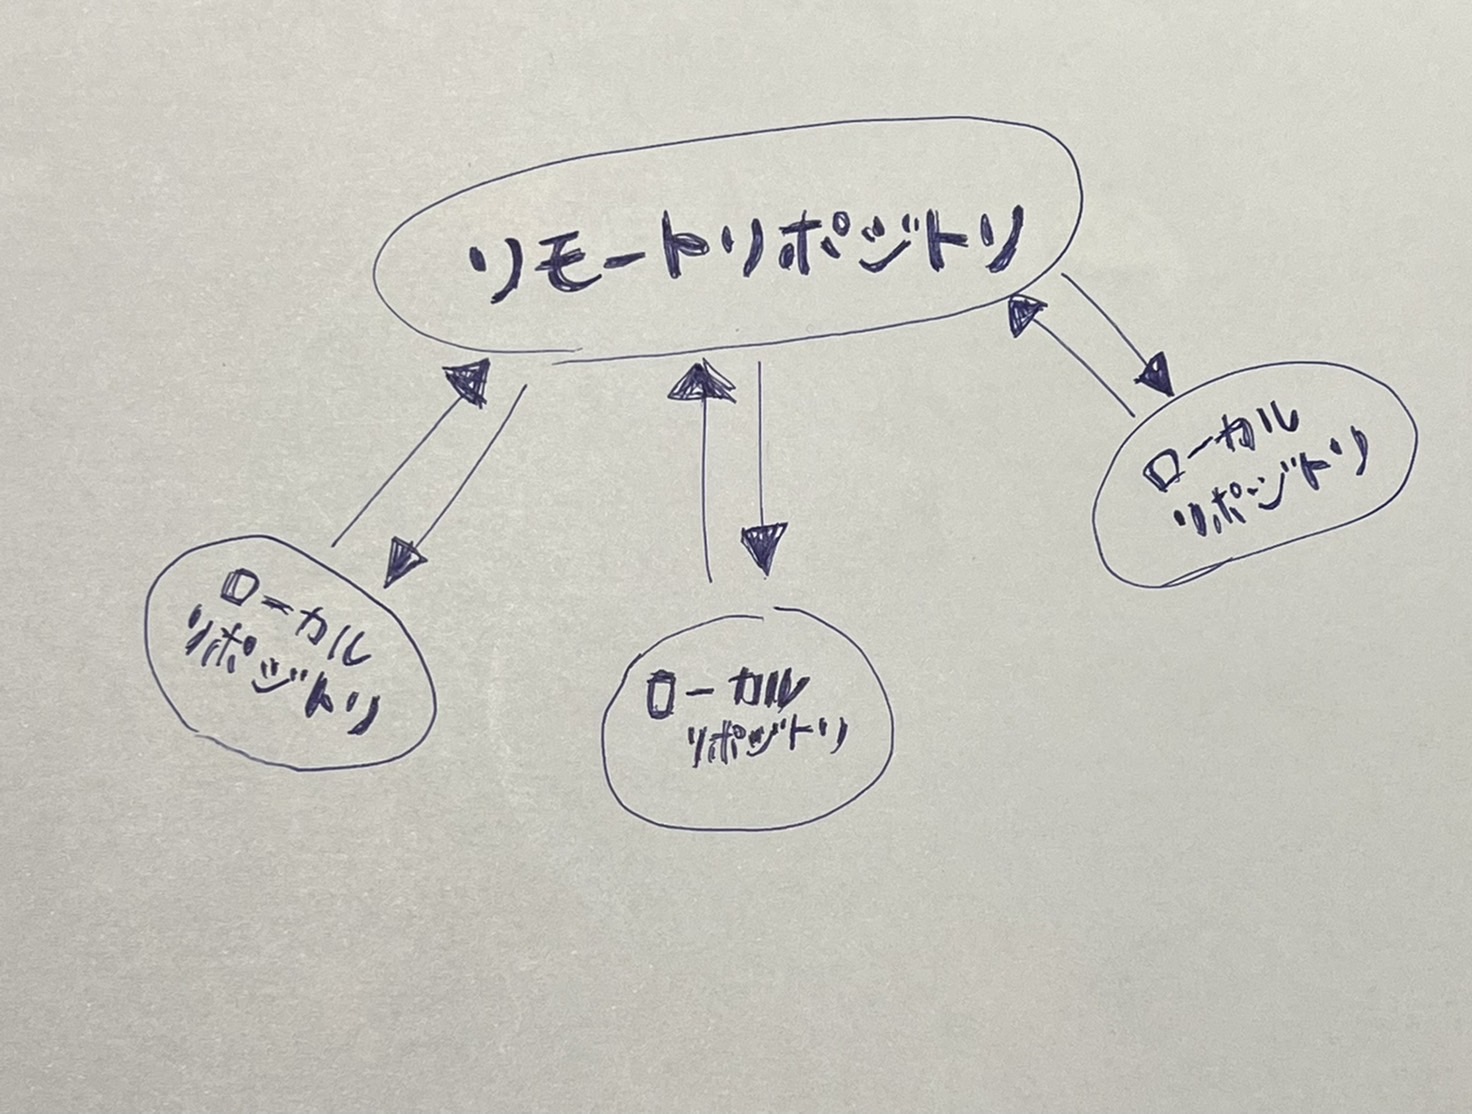 リモートリポジトリ
ローカル
リポジトリ
ローカル
リポジトリ
ローカル
リポジトリ